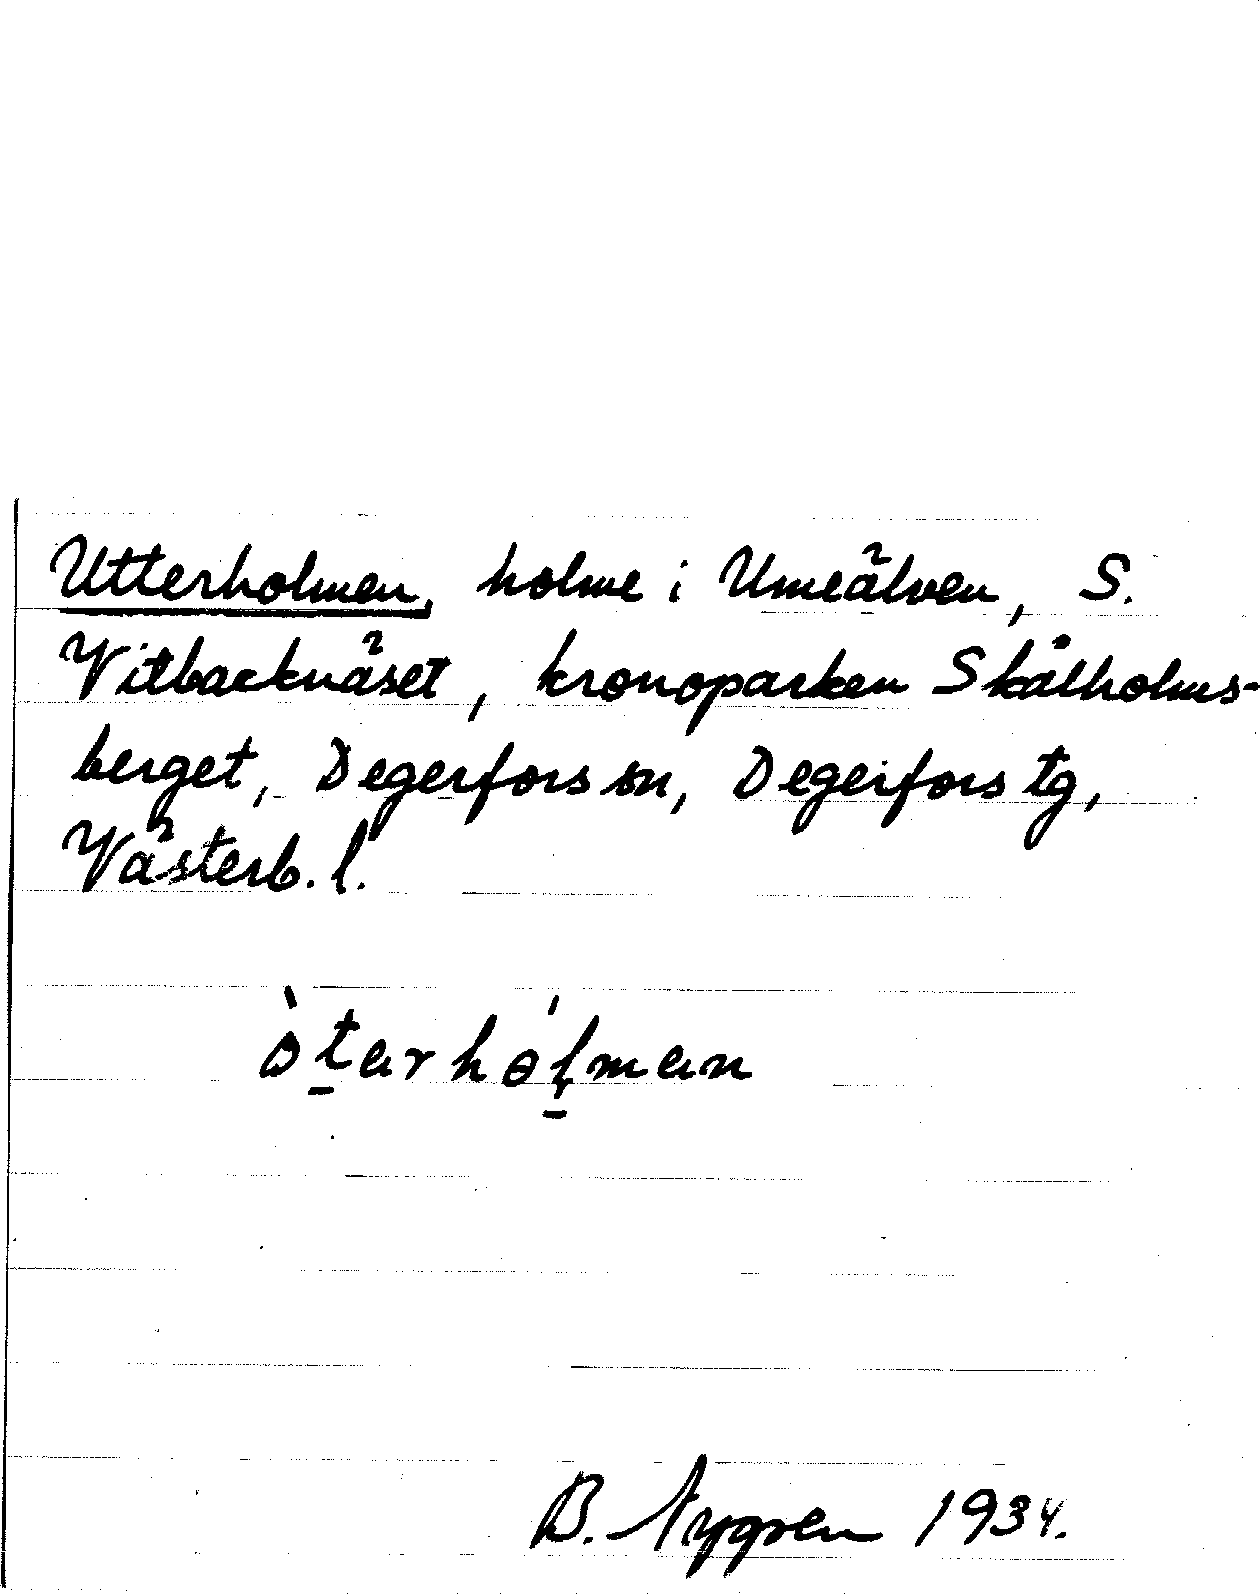 Utterholmen, holme i Umeälven, S.
Vitbacknäset, kronoparken Skålholms-
berget, Degerfors sn, Degerfors tg,
Västerb. l.
òt̠ərhól̠mən
B. Nygren 1934.